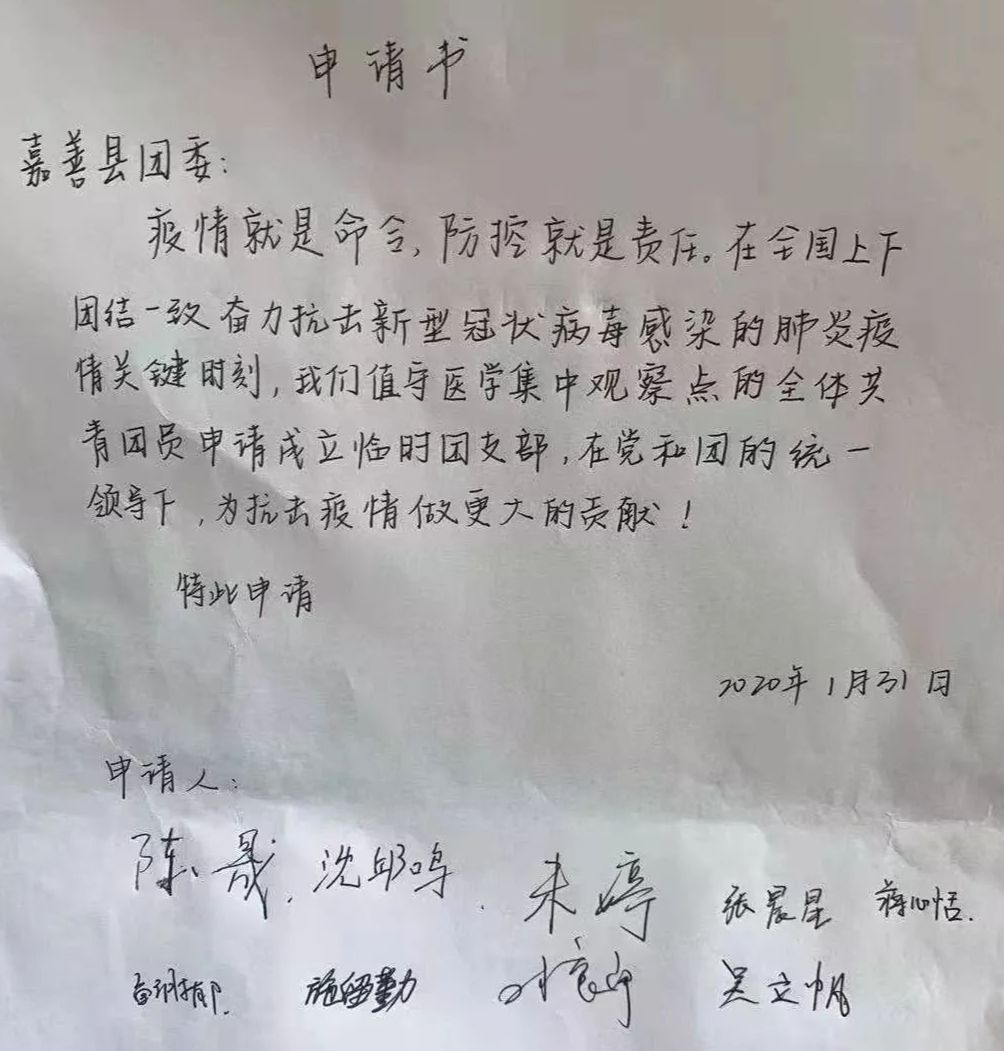 申请书
嘉善县团委：
疫情就是命令，防控就是责任。在全国上下
团结一致奋力抗击新型冠状病毒感染的肺炎疫
情关键时刻，我们值守医学集中观察点的全体共
青团员申请成立临时团支部，在党和团的统一
领导下，为抗击疫情做更大的贡献！
特此申请
2020年1月31日
申请人：
陈晟. 沈邱鸣. 朱婷 张晨星 蒋心恬.
施留勤 吴立帆